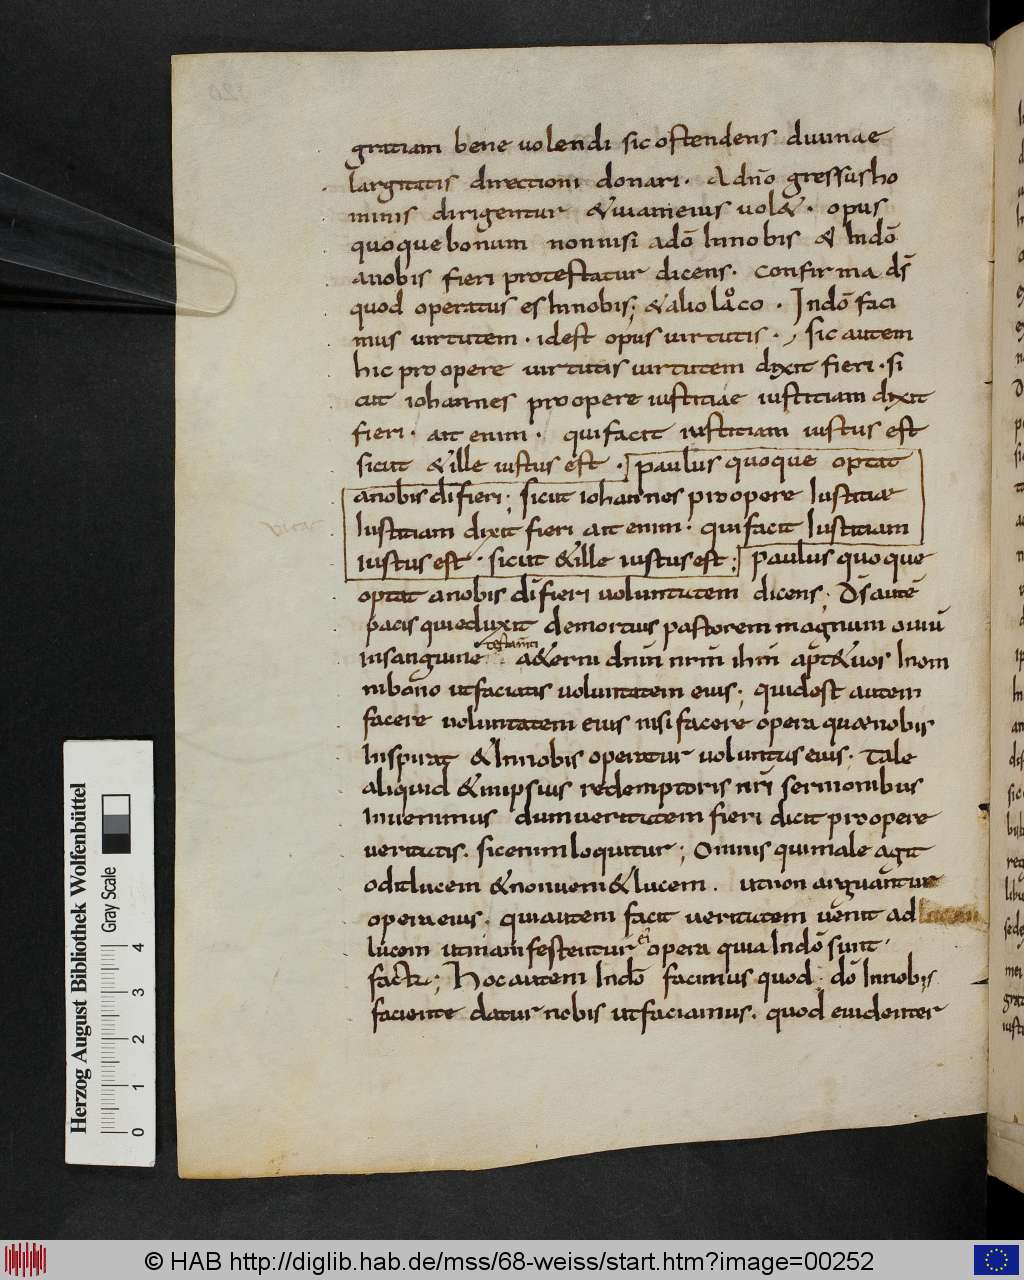 gratiam bene uolendi sic ostendens diuinae
largitatis directioni donari. A dño gressus ho
minis dirigentur & uiam eius uol&. opus
quoque bonum non nisi a dō In nobis & In dō
a nobis fieri protestatur dicens. confirma d̄s
quod operatus es In nobis; & alio loco. In dō faci
mus uirtutem. id est opus uirtutis. sic autem
hic pro opere uirtutis uirtutem dixit fieri. si
cut iohannes pro opere iustitiae iustitiam dixit
fieri. ait enim. qui facit iustitiam iustus est
sicut & ille iustus est. paulus quoque optat
a nobis di fieri; sicut iohannes pro opere Iustitiae
Iustitiam dixit fieri ait enim. qui facit Iustitiam
iustus est. sicut & ille iustus est; paulus quoque
optat a nobis dī fieri uoluntatem dicens; D̄s autē
pacis qui eduxit de mortuis pastorem magnum ouiū
in sanguine testamti a&erni dnm nrm ihm apt& uos In om
ni bono ut faciatis uoluntatem eius; quid est autem
facere uoluntatem eius nisi facere opera quae nobis
Inspirat & In nobis operatur uoluntas eius. Tale
aliquid & in ipsius redemptoris nri sermonibus
Inuenimus dum ueritatem fieri dicit pro opere
ueritatis. sic enim loquitur; Omnis qui male agit
odit lucem & non ueni& lucem. ut non arguantur
opera eius. qui autem facit ueritatem uenit ad
lucem ut manifestentur ei opera quia In dō sunt
facta; Hoc autem In dō facimus quod dō In nobis
faciente datur nobis ut faciamus. quod euidenter
Herzog August Bibliothek Wolfenbüttel
Gray Scale
0 1 2 3 4
© HAB http://diglib.hab.de/mss/68-weiss/start.htm?image=00252